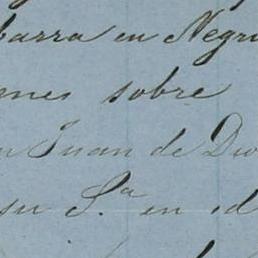 barra en Negri
enes sobre
n Juan de Dio
su S.ª en id